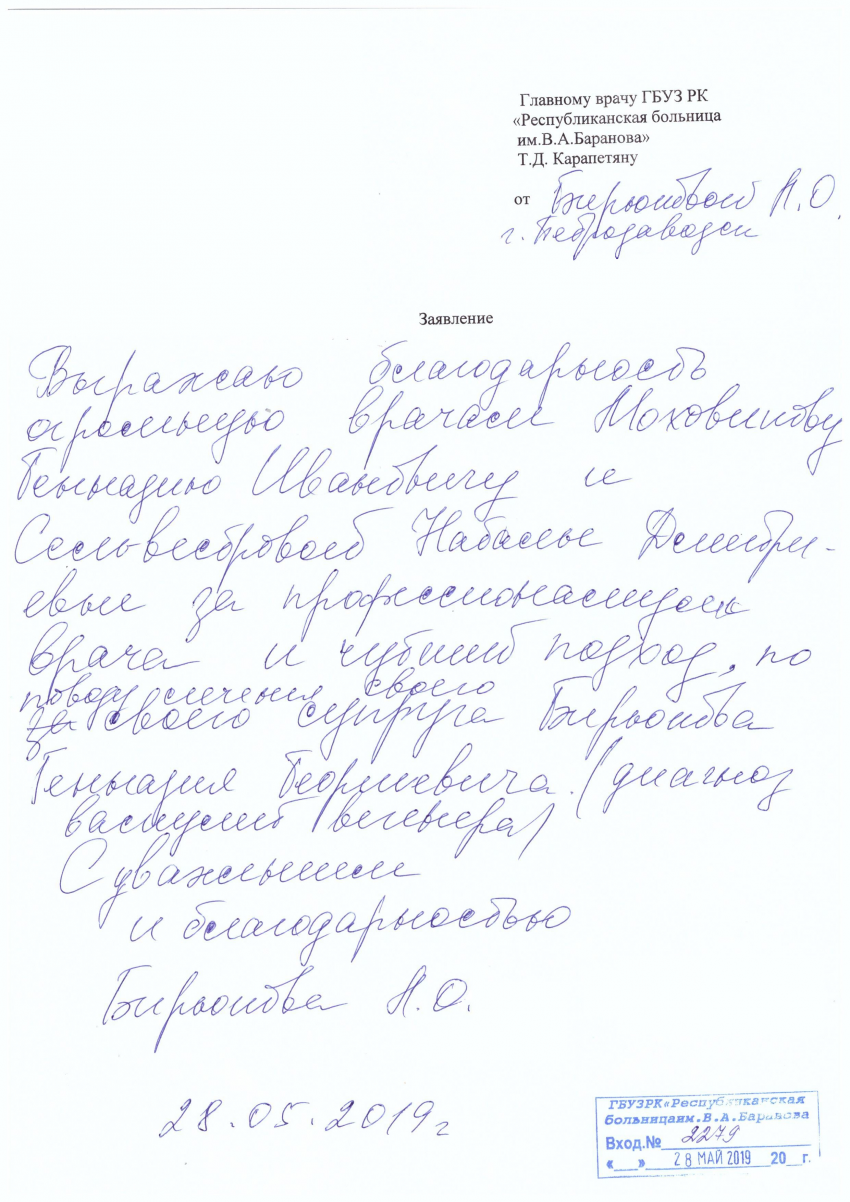 Главному врачу ГБУЗ РК
«Республиканская больница
им.В.А.Баранова»
Т.Д. Карапетяну
от Бирюковой Н.О.
г. Петрозаводск
Заявление
Выражаю благодарность
огромную врачам Моховикову
Геннадию Ивановичу и
Сельвестровой Наталье Дмитри-
евне за профессионализм
врача и чуткий подход, по
поводу лечения своего
за своего супруга Бирюкова
Геннадия Георгиевича. (диагноз
васкулит Вегенера)
С уважением
и благодарностью
Бирюкова Н.О.
28.05.2019г
ГБУЗРК«Республиканская
больницаим.В.А.Баранова
Вход.№ 2279
«__»28 МАЙ 2019 20__г.